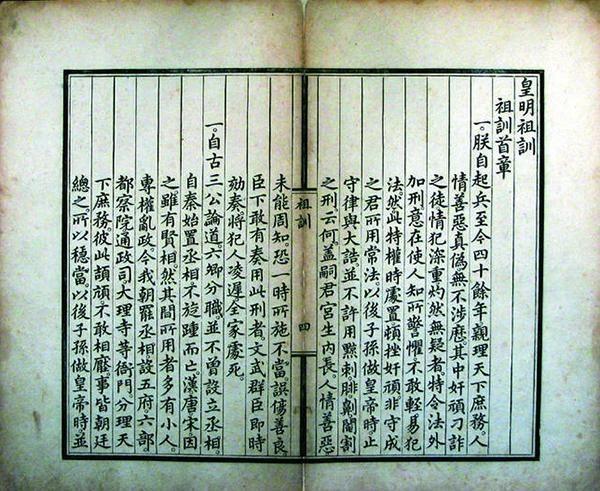 皇明祖訓
祖訓首章
一。朕自起兵至今四十餘年親理天下庶務。人
情善惡真偽無不涉歷。其中奸頑刁詐
之徒情犯深重灼然無疑者。特令法外
加刑意在使人知所警懼不敢輕易犯
法然此特權時處置頓挫奸頑非守成
之君所用常法。以後子孫做皇帝時止
守律與大誥並不許用黥刺腓劓閹割
之刑云何。蓋嗣君宮生內長。人情善惡
祖訓
四
未能周知。恐一時所施不當誤傷善良
臣下敢有奏用此刑者。文武群臣即時
劾奏將犯人凌遲全家處死。
一。自古三公論道。六卿分職。並不曾設立丞相。
自秦始置丞相不旋踵而亡。漢唐宋因
之雖有賢相然其間所用者多有小人。
專權亂政。今我朝罷丞相設五府六部。
都察院通政司大理寺等衙門。分理天
下庶務。彼此頡頏不敢相壓事皆朝廷
總之。所以穩當。以後子孫做皇帝時。並